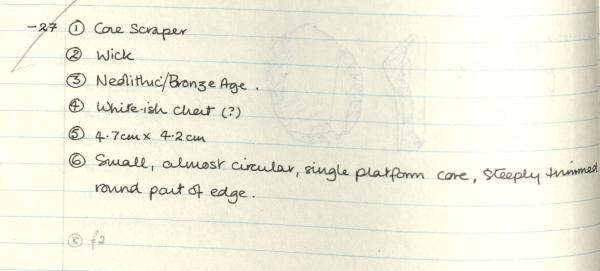 -27 ① Core Scraper
② Wick
③ Neolithic/Bronze Age.
④ White-ish Chert (?)
⑤ 4.7cm x 4.2cm
⑥ Small, almost circular, single platform core, steeply trimmed
round part of edge.
⑧ f2